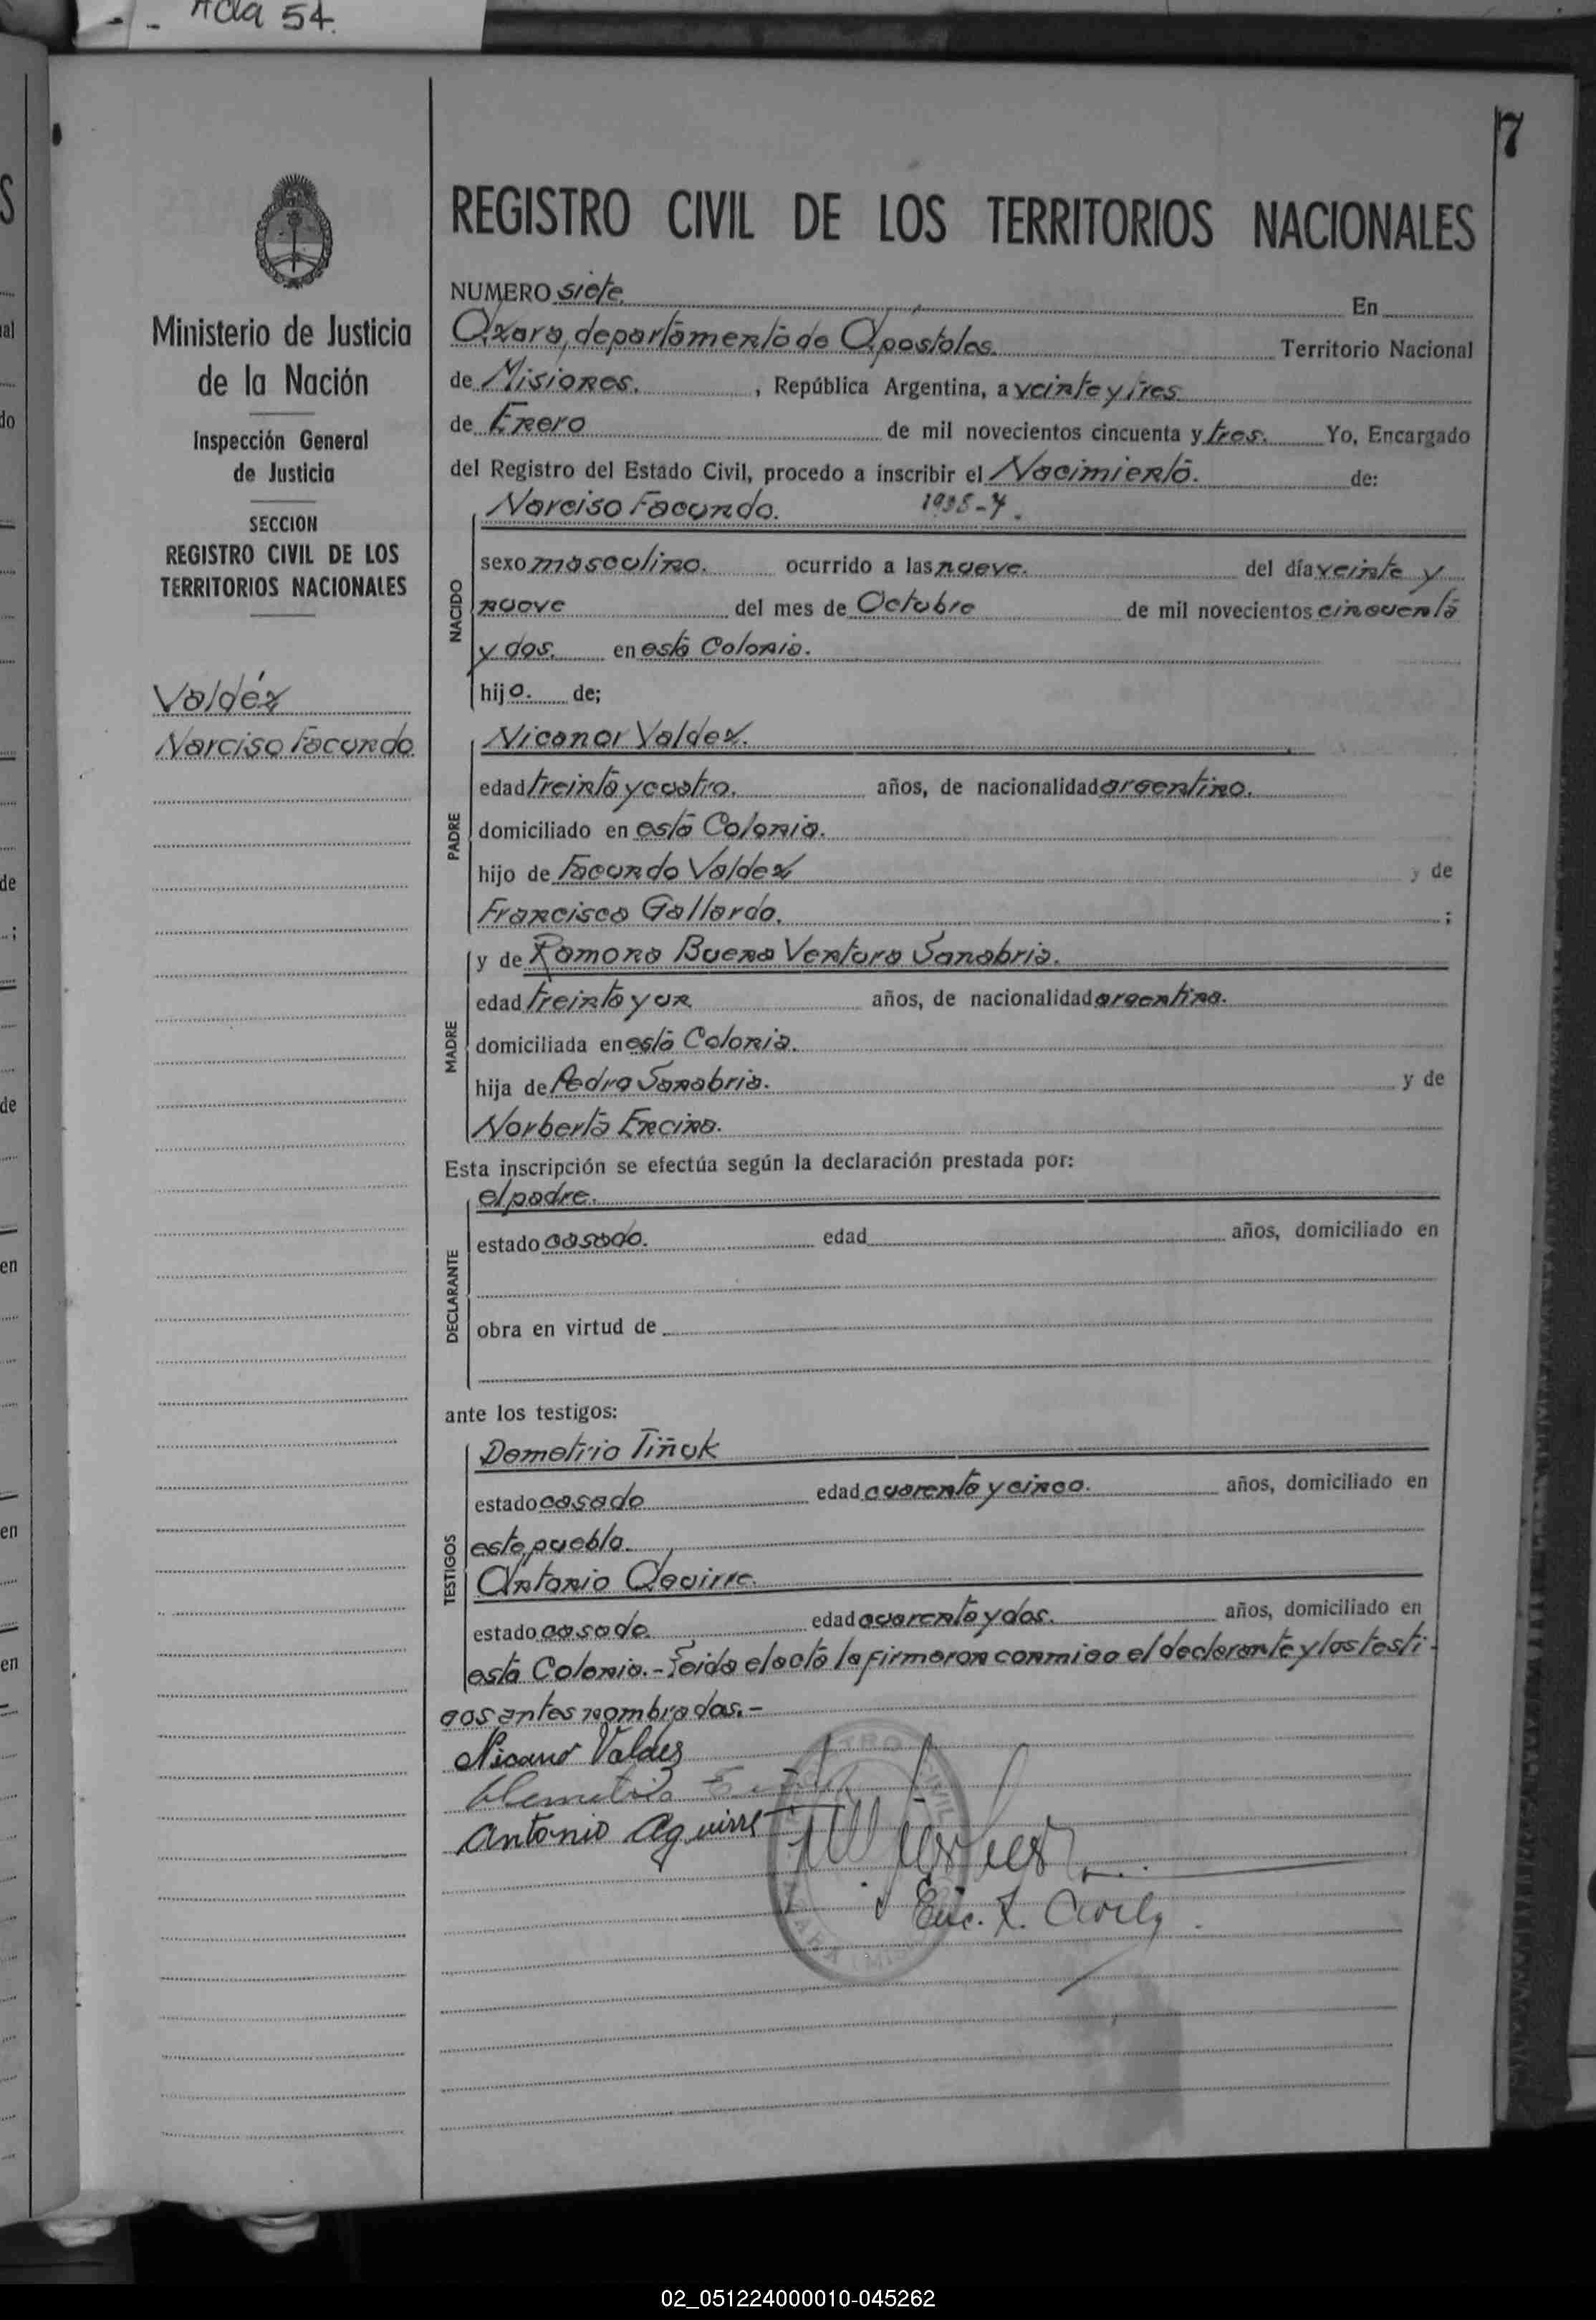 Acta 54.
7
Ministerio de Justicia
de la Nación
Inspección General
de Justicia
SECCION
REGISTRO CIVIL DE LOS
TERRITORIOS NACIONALES
Valdéz
Narciso Facundo
REGISTRO CIVIL DE LOS TERRITORIOS NACIONALES
NUMERO siete. En
Azara, departamento de Apostoles. Territorio Nacional
de Misiones. , República Argentina, a veinte y tres
de Enero de mil novecientos cincuenta y tres. Yo, Encargado
del Registro del Estado Civil, procedo a inscribir el Nacimiento. de:
Narciso Facundo.
NACIDO
sexo masculino. ocurrido a las nueve. del día veinte y
nueve del mes de Octubre de mil novecientos cincuenta
y dos. en esta Colonia.
hijo. de;
PADRE
Nicanor Valdez.
edad treinta y cuatro. años, de nacionalidad argentino.
domiciliado en esta Colonia.
hijo de Facundo Valdez y de
Francisca Gallardo. ;
MADRE
y de Ramona Buena Ventura Sanabria.
edad treinta y un años, de nacionalidad argentina.
domiciliada en esta Colonia.
hija de Pedro Sanabria. y de
Norberta Encina.
Esta inscripción se efectúa según la declaración prestada por:
DECLARANTE
el padre.
estado casado. edad años, domiciliado en
obra en virtud de
ante los testigos:
TESTIGOS
Demetrio Tiñuk
estado casado edad cuarenta y cinco. años, domiciliado en
este pueblo.
Antonio Aguirre.
estado casado edad cuarenta y dos. años, domiciliado en
esta Colonia.- Leida el acta la firmaron conmigo el declarante y los testi-
gos antes nombrados.-
Nicanor Valdez
Antonio Aguirre
Enc. R. Civil
02_051224000010-045262